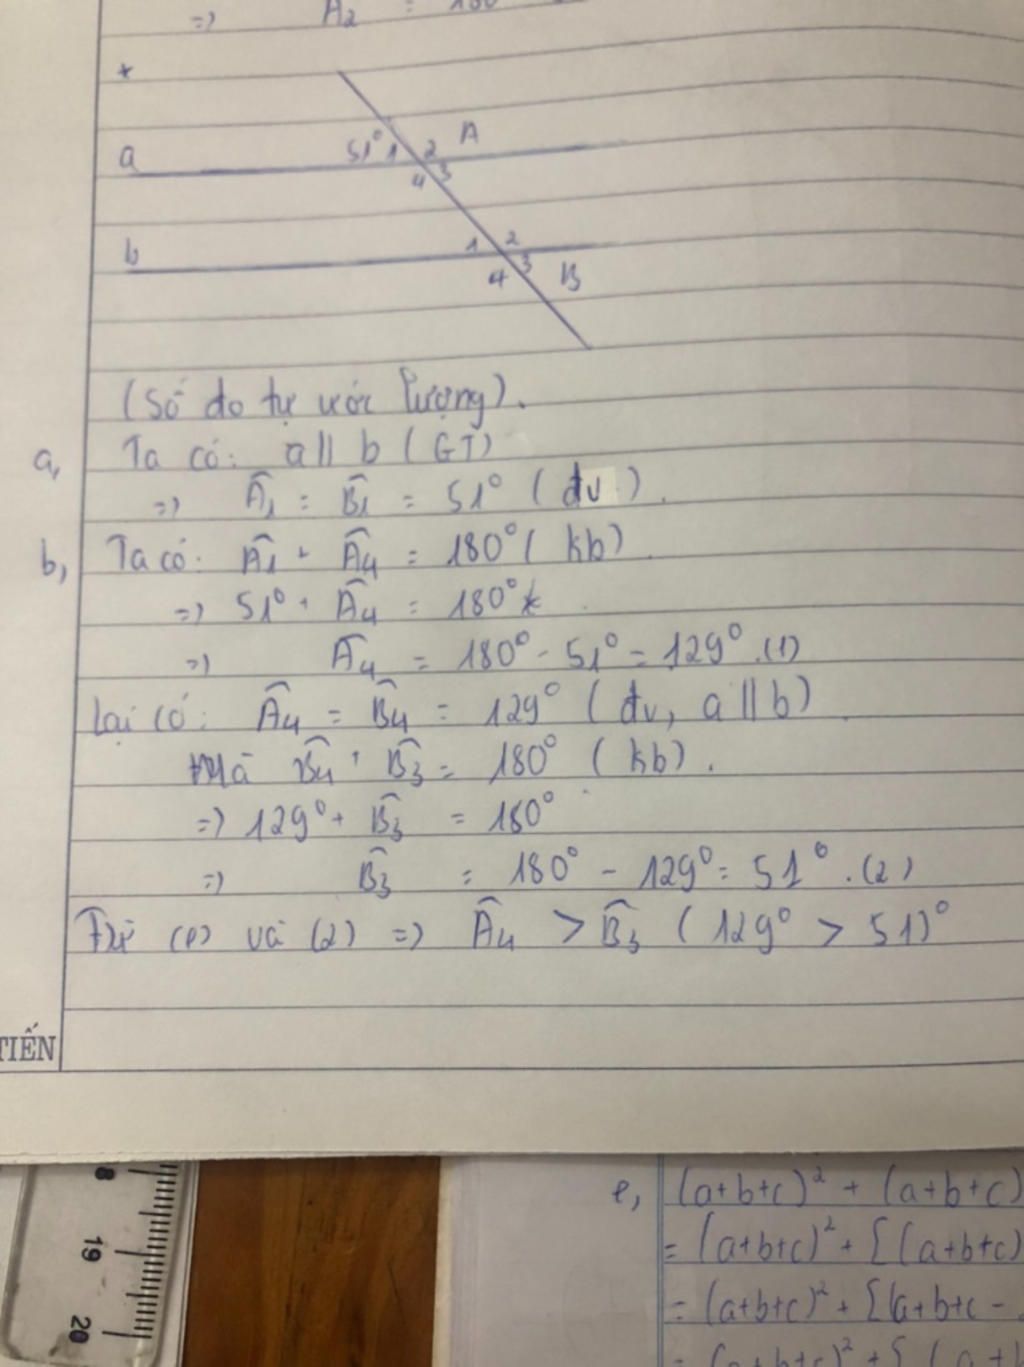 =) A₂ = 180
*
51° 1 2 A
a
4 3
b 1 2
4 3 B
(Số đo tự ước lượng).
a, Ta có: a // b (GT)
=) Â₁ = B̂₁ = 51° (đv).
b, Ta có: Â₁ + Â₄ = 180° (kb)
=) 51° + Â₄ = 180°
=) Â₄ = 180° - 51° = 129° .(1)
Lại có: Â₄ = B̂₄ = 129° (đv, a // b)
Mà B̂₄ + B̂₃ = 180° (kb).
=) 129° + B̂₃ = 180°
=) B̂₃ = 180° - 129° = 51° .(2)
Từ (1) và (2) =) Â₄ > B̂₃ (129° > 51)°
TIẾN
8
19
20
e, (a+b+c)² + (a+b+c)
= (a+b+c)² + [(a+b+c)
= (a+b+c)² + [(a+b+c -
= (a+b+c)² + [